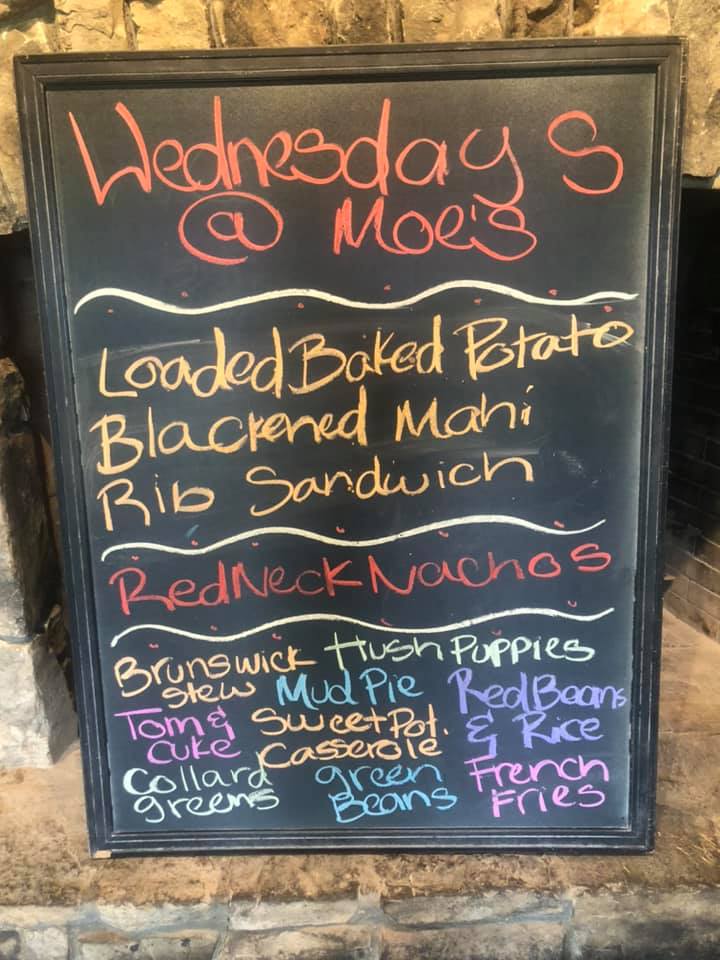 Wednesday S
@ Moe's
Loaded Baked Potato
Blackened Mahi
Rib Sandwich
RedNeck Nachos
Brunswick Stew
Hush Puppies
Mud Pie
Red Beans & Rice
Tom & Cuke
Sweet Pot. Casserole
Collard greens
green Beans
French Fries